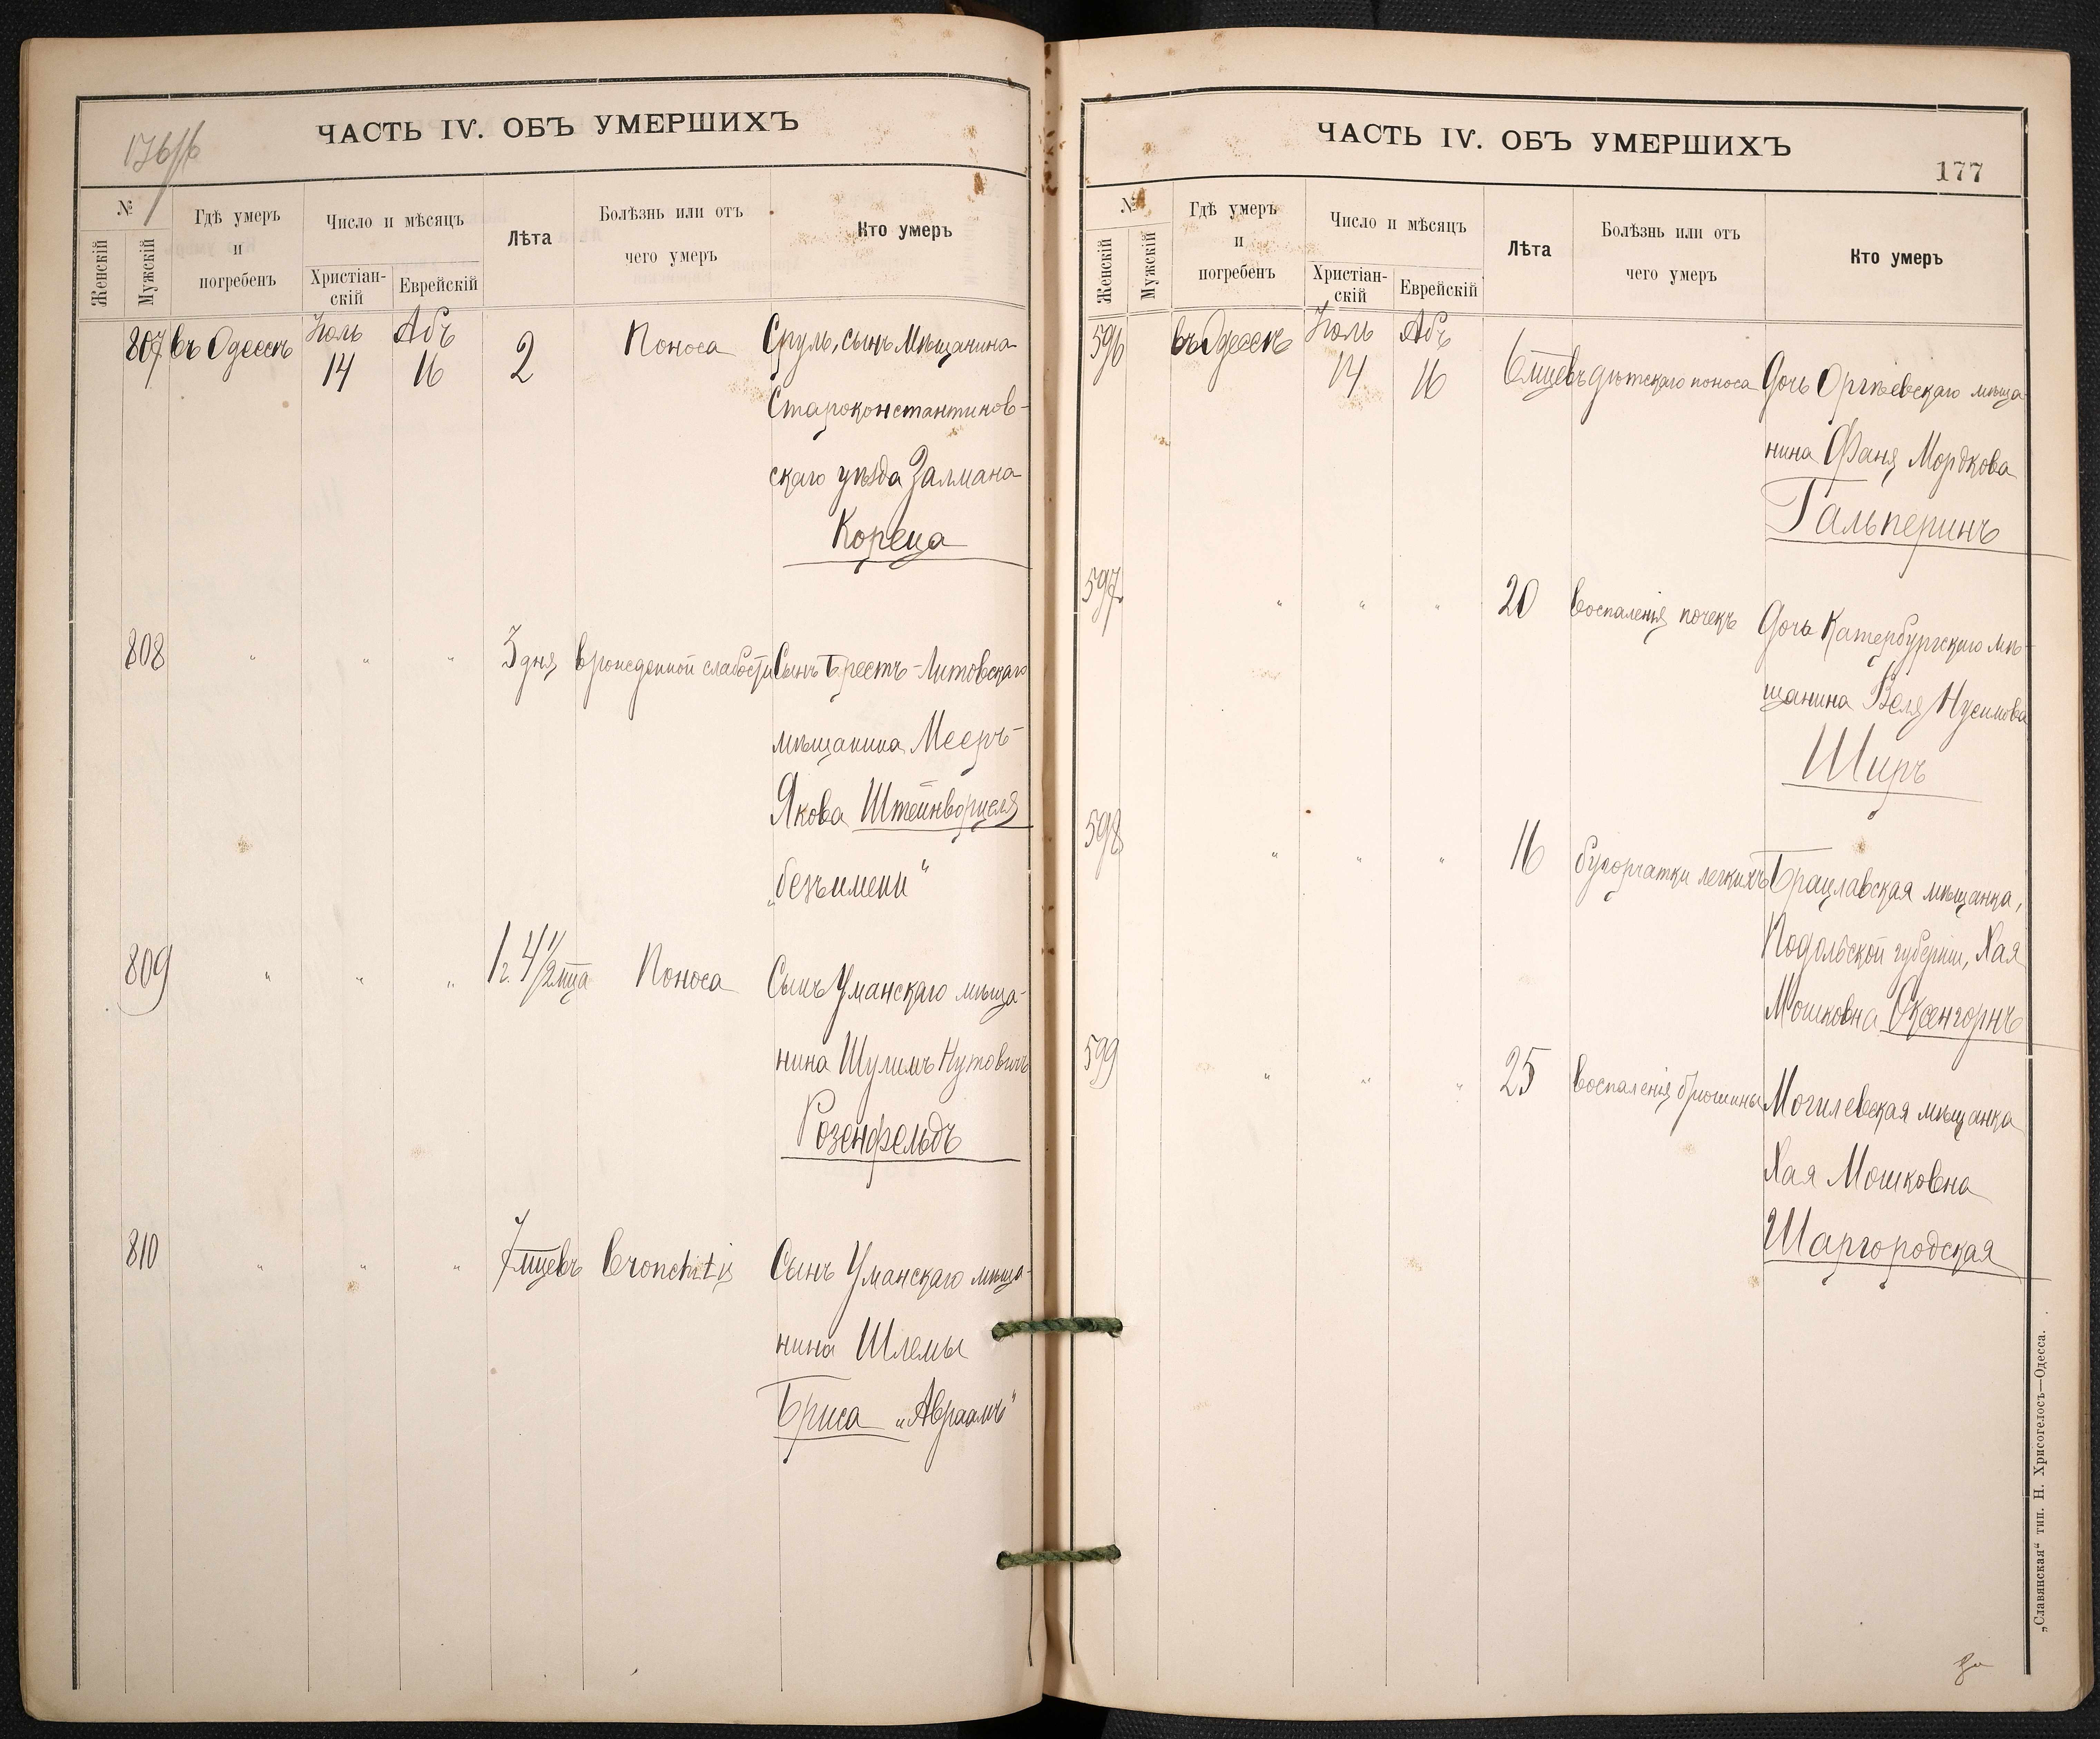 176/б
ЧАСТЬ IV. ОБЪ УМЕРШИХЪ
№
Женскій
Мужскій
Гдѣ умеръ
и
погребенъ
Число и мѣсяцъ
Христіан-
скій
Еврейскій
Лѣта
Болѣзнь или отъ
чего умеръ
Кто умеръ
807 въ Одессѣ Іюль 14 Абъ 16 2 Поноса Сруль, сынъ Мѣщанина
Староконстантинов-
скаго уѣзда Залмана
Кореца
808 " " " 3 дня врожденной слабости Сынъ Брестъ-Литовскаго
мѣщанина Мееръ-
Якова Штейнворцеля
"безъ имени"
809 " " " 1 г. 4 1/2 мца Поноса Сынъ Уманскаго мѣща-
нина Шулимъ Нутовичъ
Розенфельдъ
810 " " " 7 мцевъ bronchitis Сынъ Уманскаго мѣща-
нина Шлемы
Бриса "Авраамъ"
ЧАСТЬ IV. ОБЪ УМЕРШИХЪ
177
№
Женскій
Мужскій
Гдѣ умеръ
и
погребенъ
Число и мѣсяцъ
Христіан-
скій
Еврейскій
Лѣта
Болѣзнь или отъ
чего умеръ
Кто умеръ
596 въ Одессѣ Іюль 14 Абъ 16 6 мцевъ дѣтскаго поноса Дочь Оргѣевскаго мѣща
нина Фаня Мордкова
Гальперинъ
597 " " " 20 воспаленія почекъ Дочь Катербургскаго мѣ-
щанина Бѣля Нусимова
Ширъ
598 " " " 16 бугорчатки легкихъ Брацлавская мѣщанка,
Подольской губерніи, Хая
Мошковна Оксенгорнъ
599 " " " 25 воспаленія брюшины Могилевская мѣщанка
Хая Мошковна
Шаргородская
„Славянская“ тип. Н. Хрисогелосъ—Одесса.